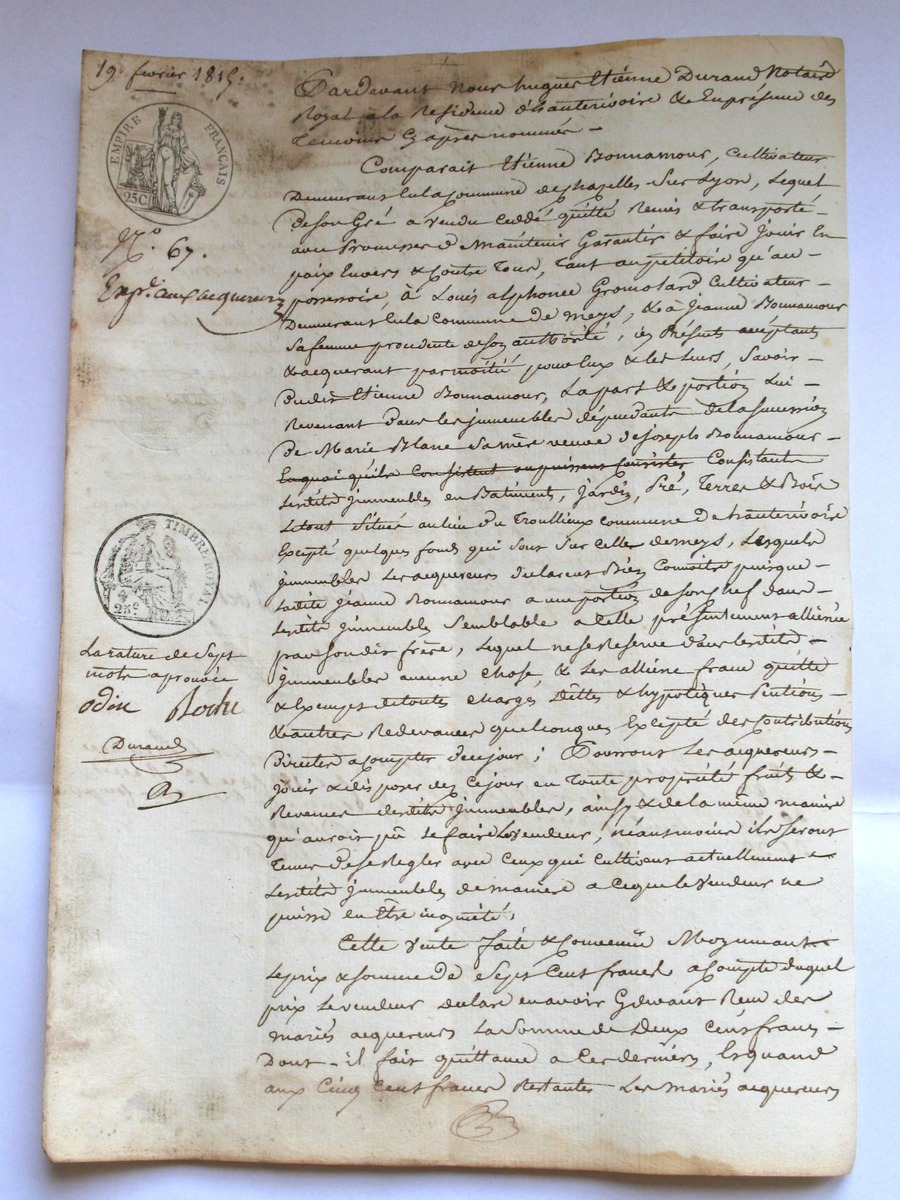 19 fevrier 1815.
EMPIRE FRANÇAIS
25C
N.° 67.
Exp.é aux acquereurs
TIMBRE ROYAL
25 c
La rature de Sept
mots aprouvée
odin Roche
Durand
Pardevant Nous hugues Etienne Durand Notaire
Royal a la Residence d'hauterivoire & En présence des
Temoins Cy après nommés –
Comparait Etienne Bonnamour, Cultivateur
Demeurant En la Commune de Chazelles Sur Lyon, Lequel
de Son Gré a vendu Ceddé quitté Remis & transporté –
avec Promesse de Maintenir Garantir & faire Jouir En
paix Envers & Contre Tous, Tant au petitoire qu'au –
possessoire, à Louis alphonce Gromolard Cultivateur
Demeurant En la Commune de Meys, & à Jeanne Bonnamour
Sa femme procedente de Son authorité, ici Présents acceptants
& acquerant par moitié pour Eux & les Leurs, Savoir –
dudit Etienne Bonnamour, La part & portion Lui –
Revenant dans les immeubles dépendants de la Succession
de Marie Blanc Sa mère veuve de joseph Bonnamour –
En quoi qu'ils Consistent ou puissent Consister Consistants
Lesdits immeubles en Batiments, jardin, Pré, Terres & Bois
Le tout Situé au lieu du Troullieux Commune de hauterivoire
Excepté quelques fonds qui Sont Sur Celle de meys, Lesquels
immeubles Les acquereurs declarent Bien Connoitre puisque –
Ladite Jeanne Bonnamour a une portion de Son Chef dans –
Lesdits immeubles Semblable a Celle présentement alliénée
par Son dit frère, Lequel ne se Reserve dans Lesdits –
immeubles aucune Chose, & Les alliène franc quitte
& Exempts de toutes Charges Dettes & hypotèques Pentions –
& autres Redevances quelconques Excepté des Contributions
directes a compter de ce jour ; Pourront Les acquereurs –
jouir & disposer dez Ce jour en Toute propriété fruits &
Revenus desdits immeubles, ainsy & de la même manière
qu'auroit pû Le faire Le vendeur, néantmoins ils Seront
Tenus de Se Regler avec Ceux qui Cultivent actuellement
Lesdits immeubles de maniere a Ceque Le vendeur ne
puisse en Être inquiété.
Cette vente faite & Convenüe Moyennant
Le prix & Somme de Sept Cent francs a Compte duquel
prix Le vendeur declare en avoir Cydevant Reçu des
mariés acquereurs La Somme de Deux Cents francs –
Dont – il fait quittance a Ces derniers, Et quand
aux Cinq Cent francs Restantes Les mariés acquereurs